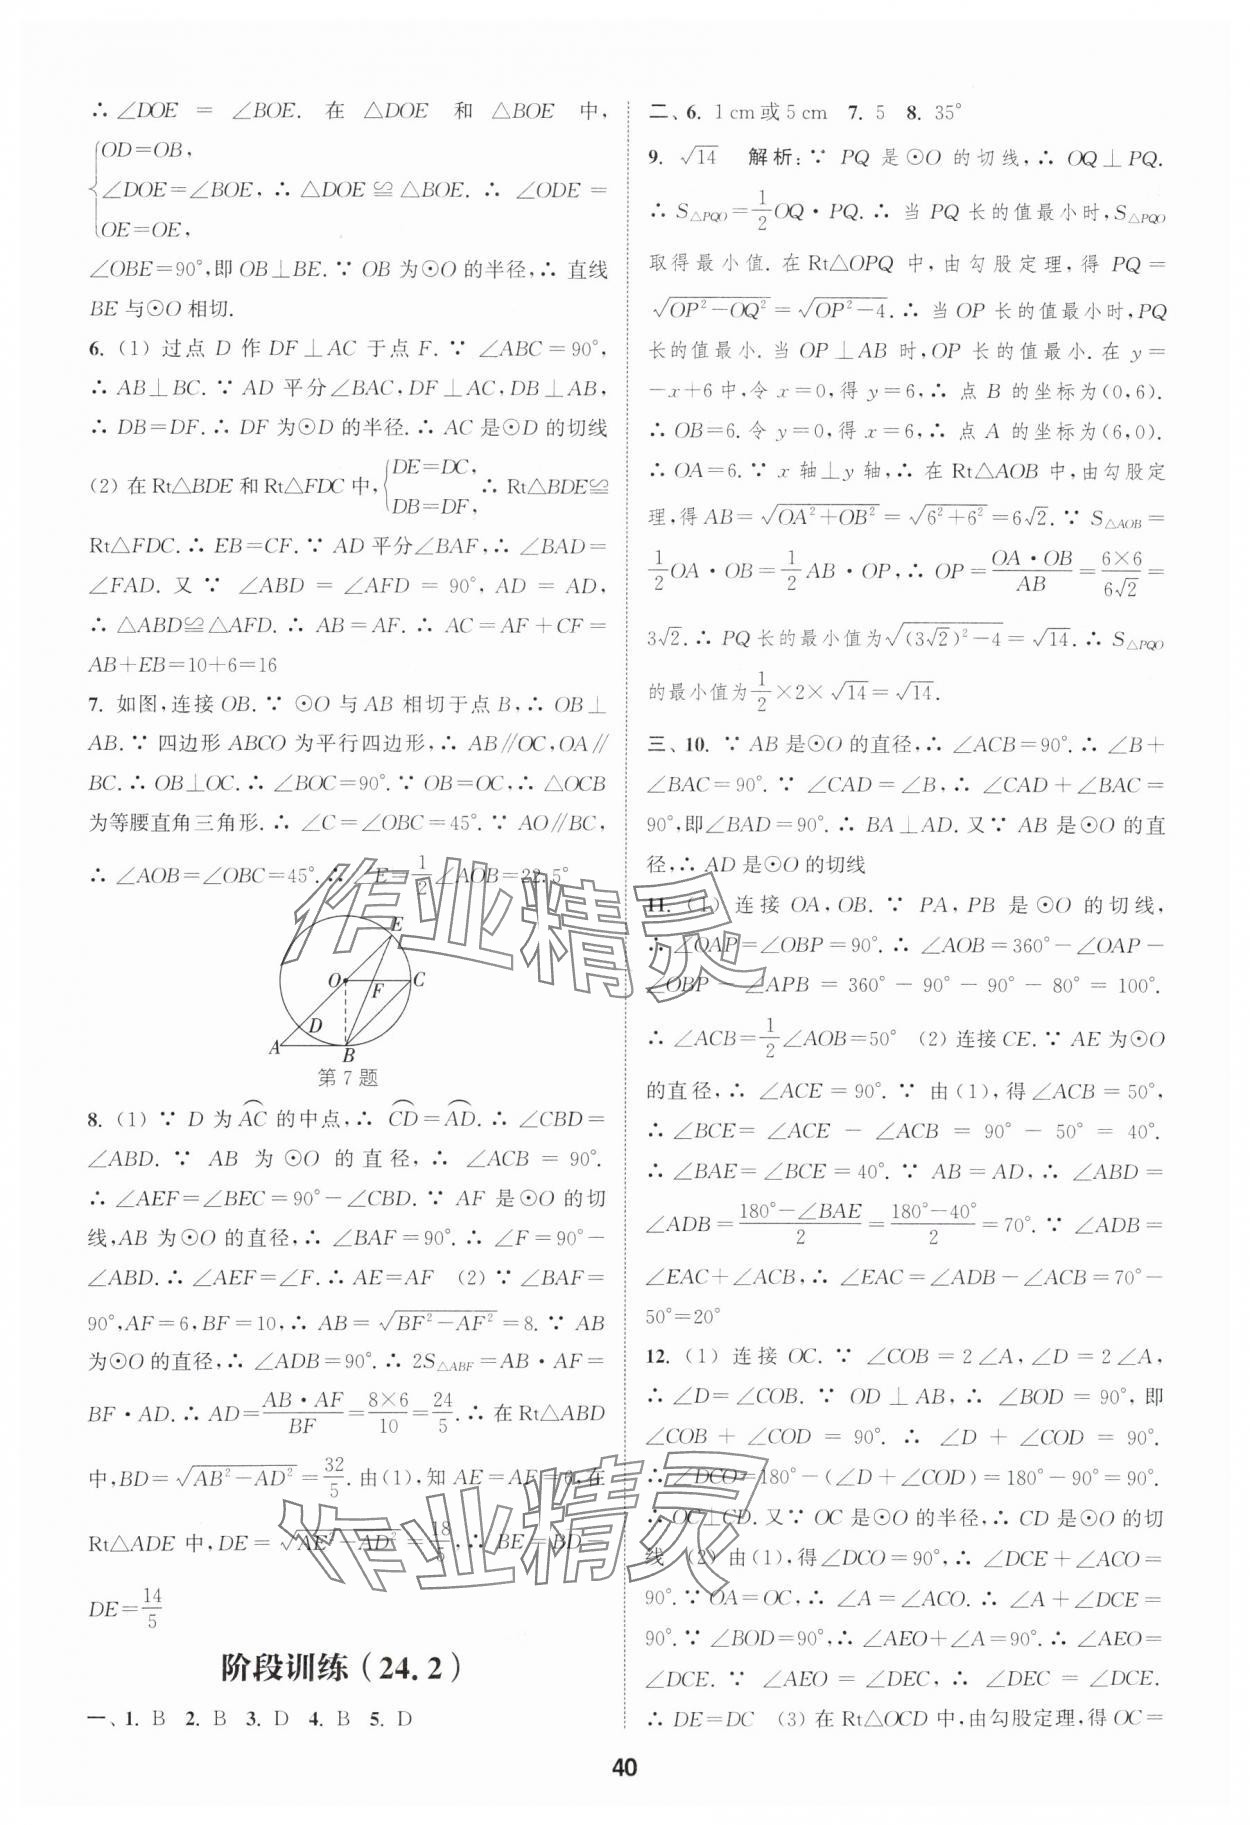 ∴ ∠DOE = ∠BOE. 在 △DOE 和 △BOE 中,
OD=OB,
∠DOE=∠BOE, ∴ △DOE ≌ △BOE. ∴ ∠ODE =
OE=OE,
∠OBE=90°,即 OB⊥BE. ∵ OB 为⊙O 的半径,∴ 直线
BE 与⊙O 相切.
6. (1) 过点 D 作 DF⊥AC 于点 F. ∵ ∠ABC=90°,
∴ AB⊥BC. ∵ AD 平分∠BAC,DF⊥AC,DB⊥AB,
∴ DB=DF. ∴ DF 为⊙D 的半径. ∴ AC 是⊙D 的切线
(2) 在 Rt△BDE 和 Rt△FDC 中, {DE=DC, DB=DF, ∴ Rt△BDE≌
Rt△FDC. ∴ EB=CF. ∵ AD 平分∠BAF, ∴ ∠BAD=
∠FAD. 又 ∵ ∠ABD = ∠AFD = 90°, AD = AD,
∴ △ABD≌△AFD. ∴ AB=AF. ∴ AC=AF+CF=
AB+EB=10+6=16
7. 如图,连接 OB. ∵ ⊙O 与 AB 相切于点 B,∴ OB⊥
AB. ∵ 四边形 ABCO 为平行四边形,∴ AB∥OC,OA∥
BC. ∴ OB⊥OC. ∴ ∠BOC=90°. ∵ OB=OC,∴ △OCB
为等腰直角三角形. ∴ ∠C=∠OBC=45°. ∵ AO∥BC,
∴ ∠AOB=∠OBC=45°. ∴ E=1/2∠AOB=22.5°
E
O
F
C
D
A
B
第 7 题
8. (1) ∵ D 为 A͡C 的中点,∴ C͡D=A͡D. ∴ ∠CBD=
∠ABD. ∵ AB 为 ⊙O 的直径, ∴ ∠ACB = 90°.
∴ ∠AEF=∠BEC=90°-∠CBD. ∵ AF 是⊙O 的切
线,AB 为⊙O 的直径,∴ ∠BAF=90°. ∴ ∠F=90°-
∠ABD. ∴ ∠AEF=∠F. ∴ AE=AF (2) ∵ ∠BAF=
90°,AF=6,BF=10,∴ AB=√(BF²-AF²)=8. ∵ AB
为⊙O 的直径,∴ ∠ADB=90°. ∴ 2S△ABF=AB·AF=
BF·AD. ∴ AD=AB·AF/BF=8×6/10=24/5. ∴ 在 Rt△ABD
中,BD=√(AB²-AD²)=32/5. 由(1),知 AE=AF=6,在
Rt△ADE 中,DE=√(AE²-AD²)=18/5. ∴ BE=BD-
DE=14/5
阶段训练(24.2)
一、1. B 2. B 3. D 4. B 5. D
二、6. 1 cm 或 5 cm 7. 5 8. 35°
9. √14 解析:∵ PQ 是⊙O 的切线,∴ OQ⊥PQ.
∴ S△PQO=1/2OQ·PQ. ∴ 当 PQ 长的值最小时,S△PQO
取得最小值. 在 Rt△OPQ 中,由勾股定理,得 PQ=
√(OP²-OQ²)=√(OP²-4). ∴ 当 OP 长的值最小时,PQ
长的值最小. 当 OP⊥AB 时,OP 长的值最小. 在 y=
-x+6 中,令 x=0,得 y=6,∴ 点 B 的坐标为(0,6).
∴ OB=6. 令 y=0,得 x=6,∴ 点 A 的坐标为(6,0).
∴ OA=6. ∵ x 轴⊥y 轴,∴ 在 Rt△AOB 中,由勾股定
理,得 AB=√(OA²+OB²)=√(6²+6²)=6√2. ∵ S△AOB=
1/2OA·OB=1/2AB·OP,∴ OP=OA·OB/AB=6×6/6√2=
3√2. ∴ PQ 长的最小值为√((3√2)²-4)=√14. ∴ S△PQO
的最小值为1/2×2×√14=√14.
三、10. ∵ AB 是⊙O 的直径,∴ ∠ACB=90°. ∴ ∠B+
∠BAC=90°. ∵ ∠CAD=∠B,∴ ∠CAD+∠BAC=
90°,即∠BAD=90°. ∴ BA⊥AD. 又∵ AB 是⊙O 的直
径,∴ AD 是⊙O 的切线
11. (1) 连接 OA,OB. ∵ PA,PB 是⊙O 的切线,
∴ ∠OAP=∠OBP=90°. ∴ ∠AOB=360°-∠OAP-
∠OBP-∠APB=360°-90°-90°-80°=100°.
∴ ∠ACB=1/2∠AOB=50° (2) 连接 CE. ∵ AE 为⊙O
的直径,∴ ∠ACE=90°. ∵ 由(1),得∠ACB=50°,
∴ ∠BCE=∠ACE-∠ACB=90°-50°=40°.
∴ ∠BAE=∠BCE=40°. ∵ AB=AD,∴ ∠ABD=
∠ADB=(180°-∠BAE)/2=(180°-40°)/2=70°. ∵ ∠ADB=
∠EAC+∠ACB,∴ ∠EAC=∠ADB-∠ACB=70°-
50°=20°
12. (1) 连接 OC. ∵ ∠COB=2∠A,∠D=2∠A,
∴ ∠D=∠COB. ∵ OD⊥AB,∴ ∠BOD=90°,即
∠COB+∠COD=90°. ∴ ∠D+∠COD=90°.
∴ ∠DCO=180°-(∠D+∠COD)=180°-90°=90°.
∴ OC⊥CD. 又∵ OC 是⊙O 的半径,∴ CD 是⊙O 的切
线 (2) 由(1),得∠DCO=90°,∴ ∠DCE+∠ACO=
90°. ∵ OA=OC,∴ ∠A=∠ACO. ∴ ∠A+∠DCE=
90°. ∵ ∠BOD=90°,∴ ∠AEO+∠A=90°. ∴ ∠AEO=
∠DCE. ∵ ∠AEO=∠DEC,∴ ∠DEC=∠DCE.
∴ DE=DC (3) 在 Rt△OCD 中,由勾股定理,得 OC=
40
作业精灵
作业精灵